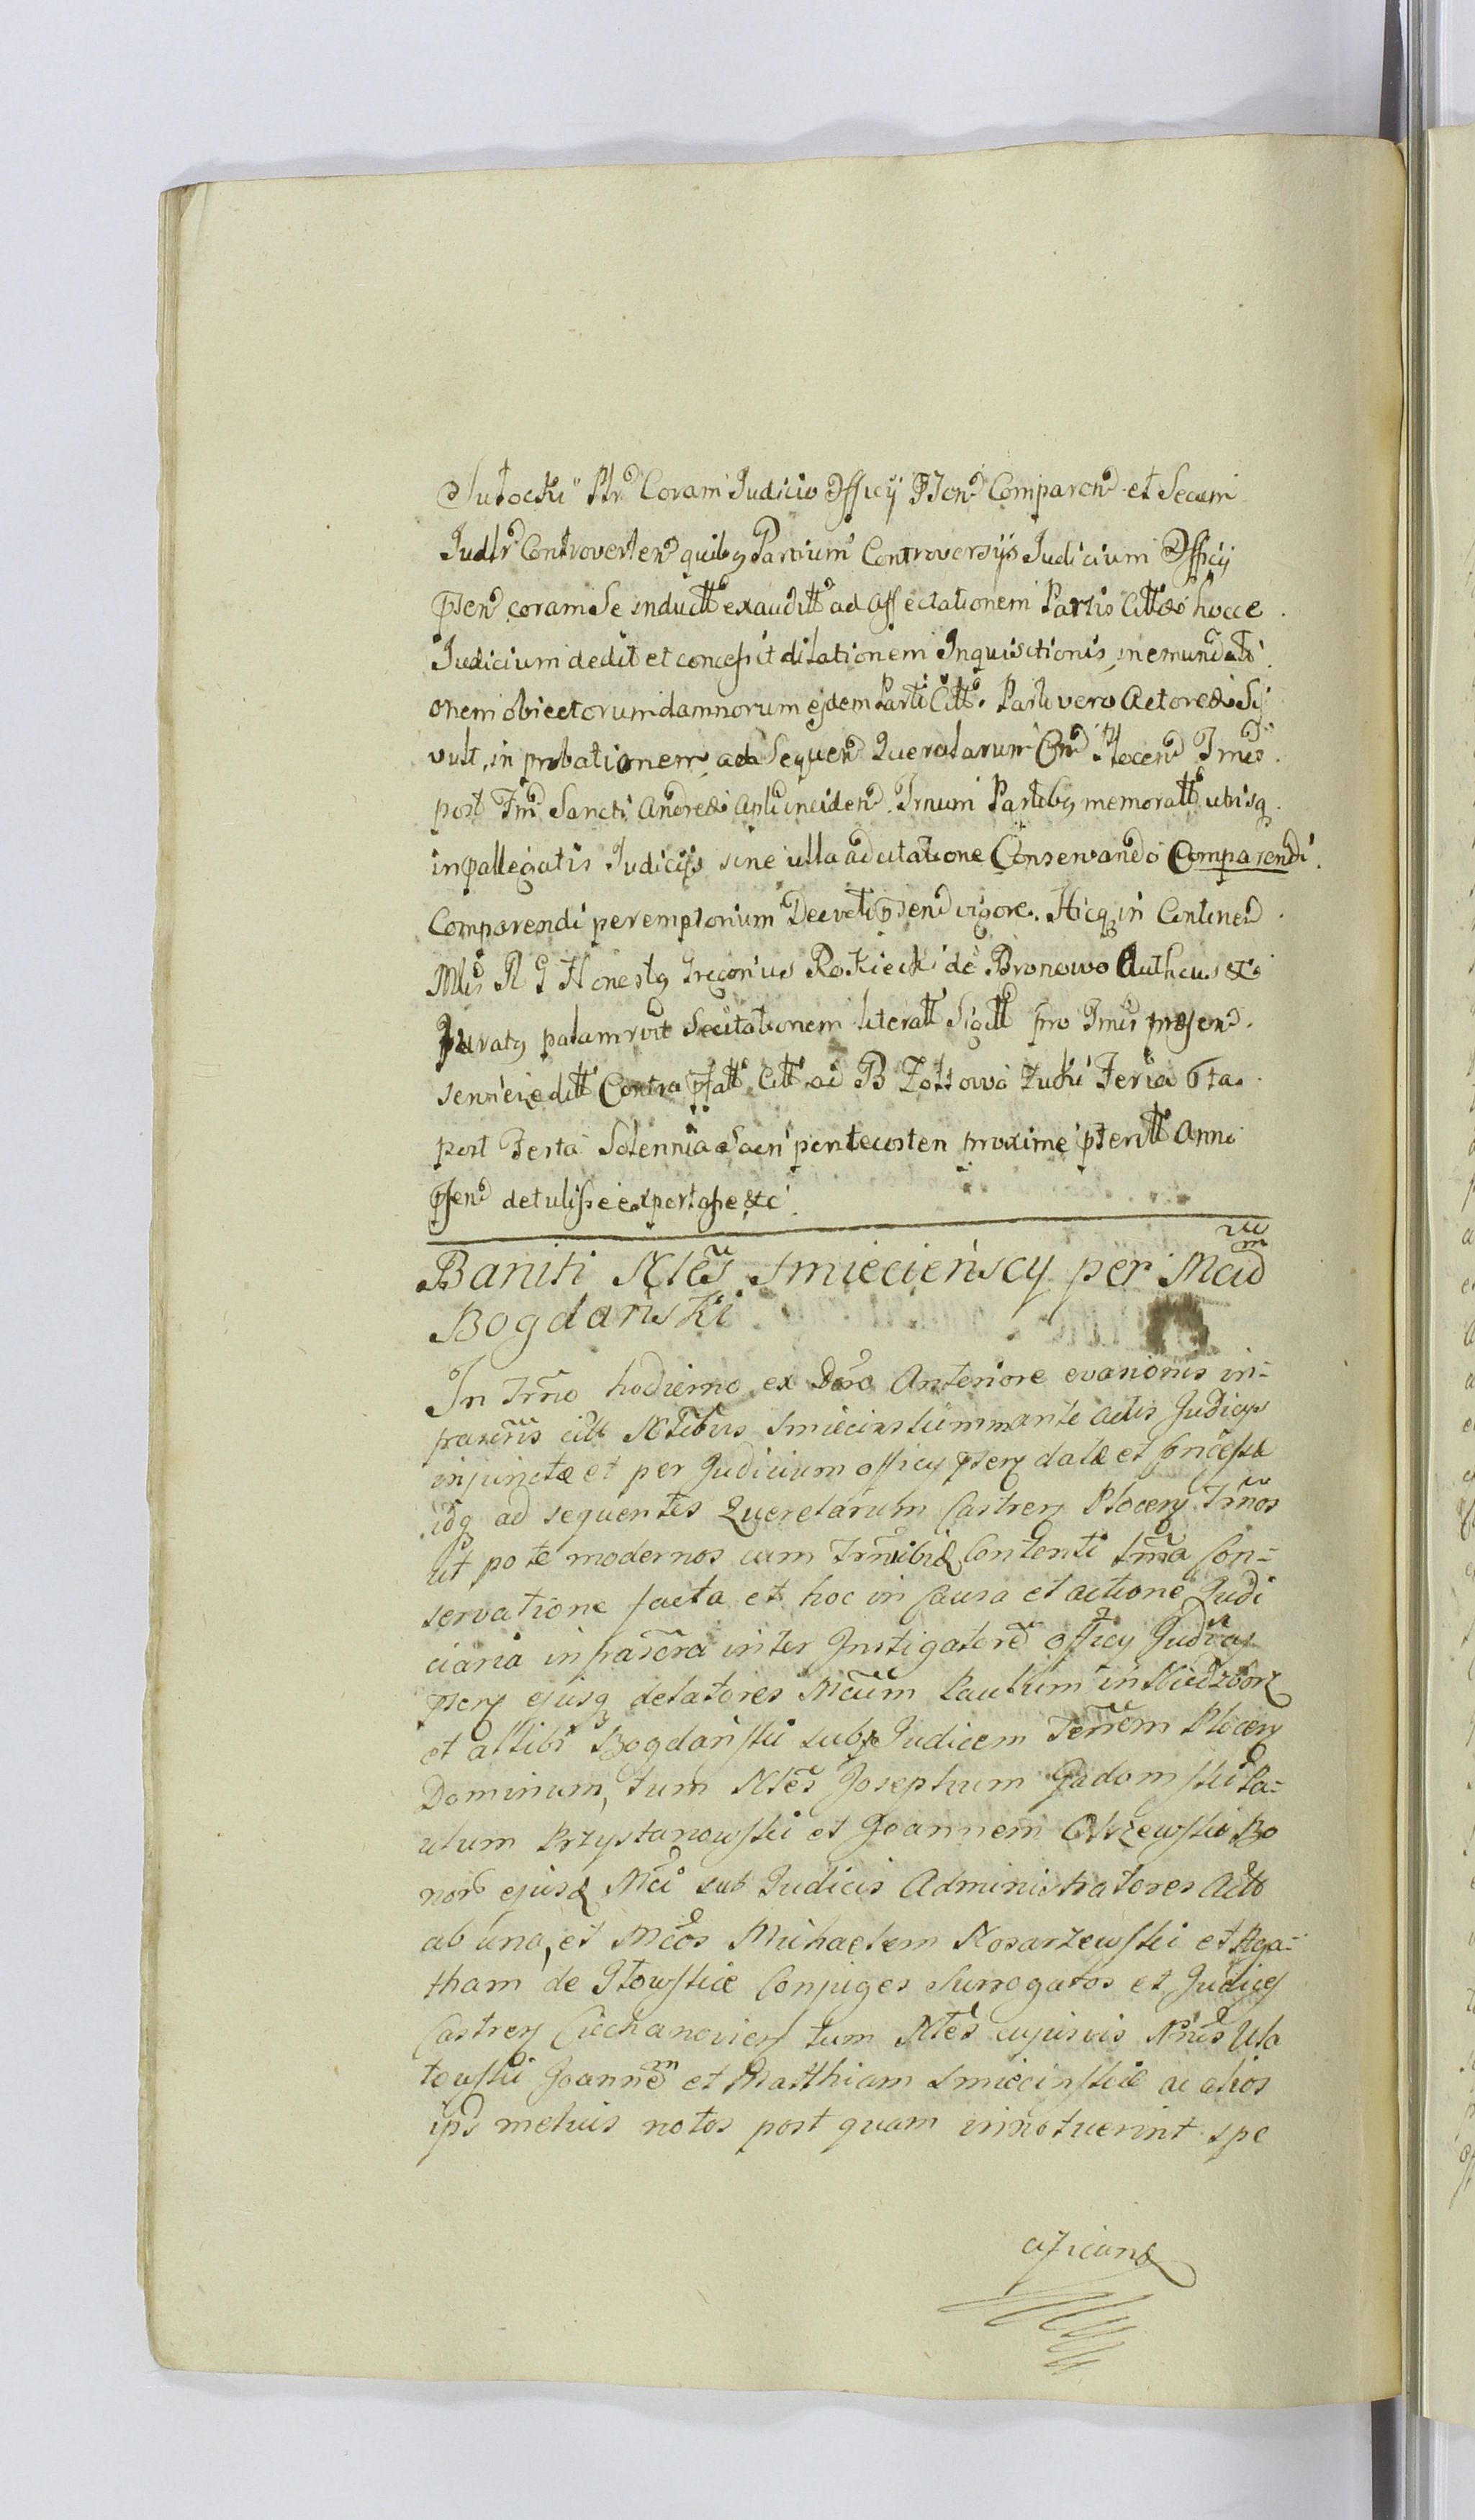 Sutocki Ptr Coram Judicio Officij Psen Comparen et Secum
Judtr Controverten quibq Partium Controversijs Judicium Officij
Psen coram Se induclt exauditt ad affectationem Partis Cittae hocce
Judicium dedit et concessit dilationem Inquisitionis, in emundati
onem obiectorum damnorum ejdem Parti Citt. Parti vero Actoreae Si
vult, in probationem, ad Sequen Querelarum Cn Plocen Tmis
post Fm Sancti Andreae Apli inciden Trnum Partibq memoratt utrisq
in pallegatis Judicijs sine ulla adcitatione Conservando Comparendi
Comparendi peremptorium Decreti Psen vigore. Hicq in Continen
Mtis R G Honestq Gregorius Rokicki de Bronowo Autheus &c
Juratq palam rvit Se citationem literatt Sigilt pro Tmis praesen
senvieeditt Contra Pfatt Citt ad B Zottowo Łuki Feria 6ta
post Festa Solennia Sacri pentecosten proxime pteritt Anno
Psen detulisse et portasse &c
Baniti Ntes Smiecieńscy per Mcum
Bogdański
In Trno hodierno ex Dcro Anteriore evasionis in-
frascris citt Ntibus Smiecinskiim mante actis Judicijs
injunctae et per Judicium officij Psen datae et Concessae
idq ad sequentes Querelarum Castren Plocen Trnos
ut pote modernos cum Trnibq Contenti Trna Con-
servatione facta et hoc in Causa et actione Judi
ciaria infrascra inter Instigatore officij Judicij
Psen ejusq delatores Mcum Paulum in Niedzborz
et attibi Bogdański subJudicem Terrem Plocen
Dominum, tum Ntes Josephum Gadomski Pa-
ulum Przystanowski et Joannem Olszewski Bo
nor ejusd Mci sub Judicis Administratores Acto
ab una, et Mcos Michaelem Kosarzewski et Aga-
tham de Głowskie Conjuges Surrogatos et Judices
Castren Ciechanovien tum Ntes cujusvis Nnis Uła
towski Joannem et Matthiam Smiecinskie ac alios
ips melius notos post quam innotuerint spe
cificand